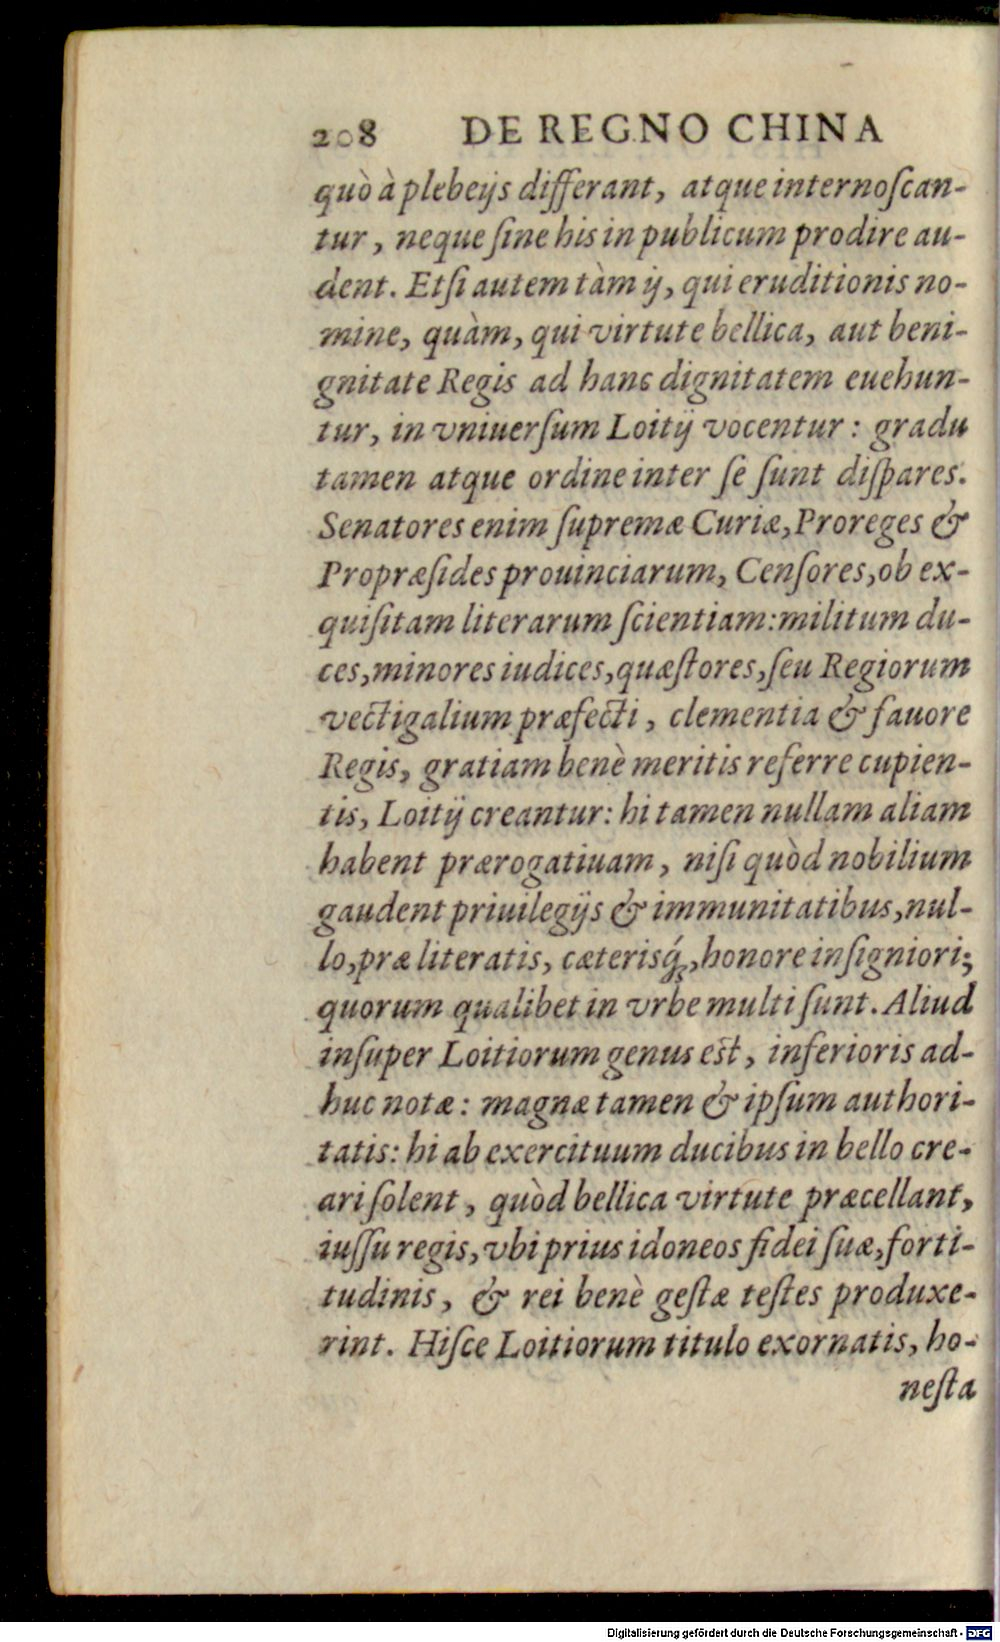 208 DE REGNO CHINA
quò à plebeijs differant, atque internoſcan-
tur, neque ſine his in publicum prodire au-
dent. Etſi autem tàm ij, qui eruditionis no-
mine, quàm, qui virtute bellica, aut beni-
gnitate Regis ad hanc dignitatem euehun-
tur, in vniuerſum Loitij vocentur: gradu
tamen atque ordine inter ſe ſunt diſpares.
Senatores enim ſupremæ Curiæ, Proreges &
Propræſides prouinciarum, Cenſores, ob ex-
quiſitam literarum ſcientiam: militum du-
ces, minores iudices, quæſtores, ſeu Regiorum
vectigalium præfecti, clementia & fauore
Regis, gratiam benè meritis referre cupien-
tis, Loitij creantur: hi tamen nullam aliam
habent prærogatiuam, niſi quòd nobilium
gaudent priuilegijs & immunitatibus, nul-
lo, præ literatis, cæterisq́;, honore inſigniori;
quorum qualibet in vrbe multi ſunt. Aliud
inſuper Loitiorum genus est, inferioris ad-
huc notæ: magnæ tamen & ipſum authori-
tatis: hi ab exercituum ducibus in bello cre-
ari ſolent, quòd bellica virtute præcellant,
iuſſu regis, vbi prius idoneos fidei ſuæ, forti-
tudinis, & rei benè geſtæ teſtes produxe-
rint. Hiſce Loitiorum titulo exornatis, ho-
neſta
Digitalisierung gefördert durch die Deutsche Forschungsgemeinschaft - DFG